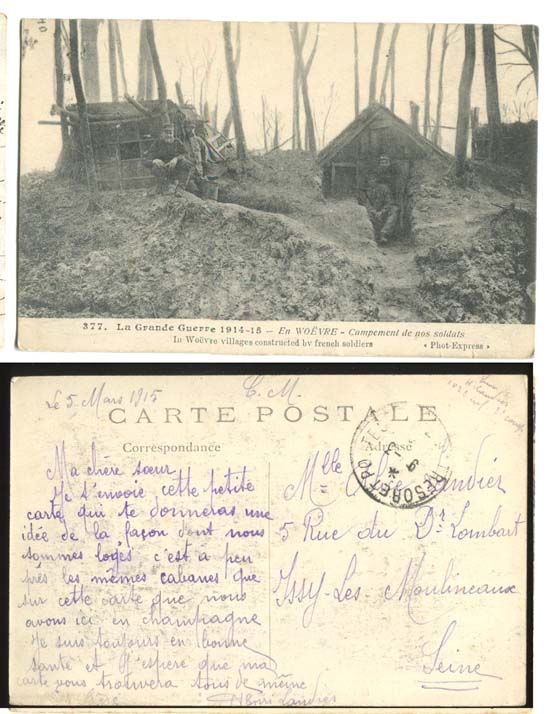 377. La Grande Guerre 1914-15 – En WOËVRE - Campement de nos soldats
In Woëvre villages constructed by french soldiers « Phot-Express »
Le 5 Mars 1915 C.M.
CARTE POSTALE
Correspondance
Adresse
TRESOR ET PO
Ma chère sœur
Je t'envoie cette petite
carte qui te donneras une
idée de la façon dont nous
sommes logés c'est a peu
près les mêmes cabanes que
sur cette carte que nous
avons ici en champagne
Je suis toujours en bonne
santé et j'espère que ma
carte vous trouvera tous de même
Henri Landrés
Mlle
5 Rue du Dr Lombart
Issy-Les-Moulineaux
Seine